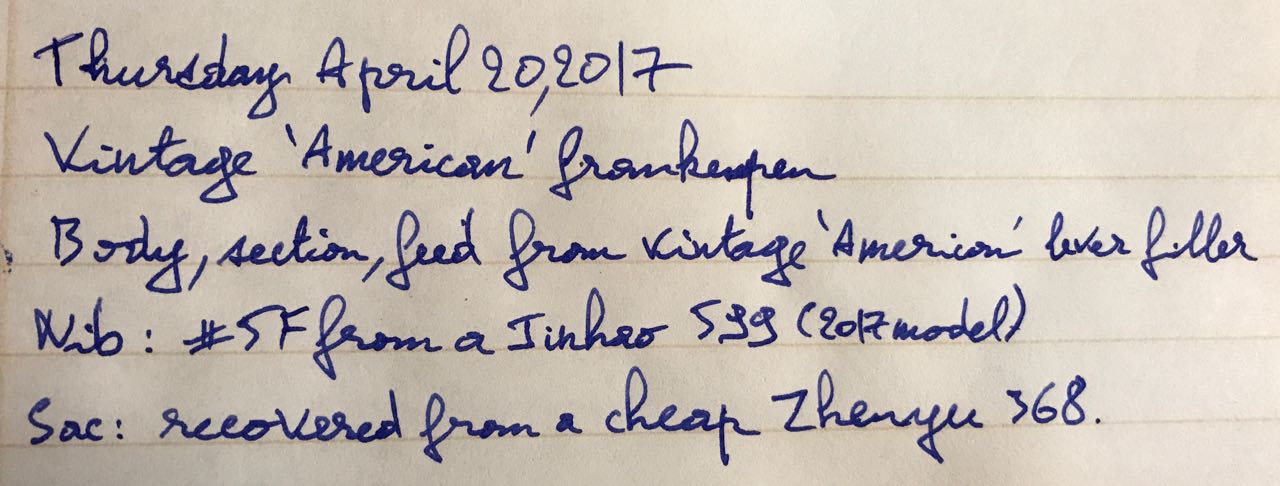 Thursday April 20, 2017
Vintage 'American' frankenpen
Body, section, feed from vintage 'American' lever filler
Nib: #5F from a Jinhao 599 (2017 model)
Sac: recovered from a cheap Zhenyu 368.